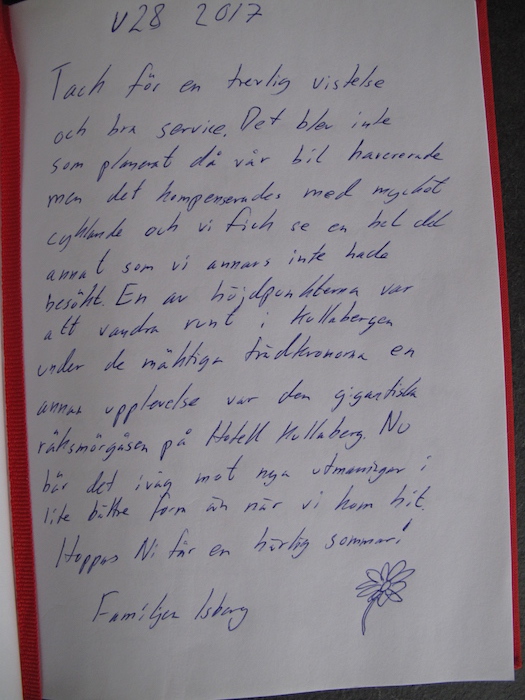 V28 2017
Tack för en trevlig vistelse
och bra service. Det blev inte
som planerat då vår bil havererade
men det kompenserades med mycket
cyklande och vi fick se en hel del
annat som vi annars inte hade
besökt. En av höjdpunkterna var
att vandra runt i Kullabergen
under de mäktiga trädkronorna en
annan upplevelse var den gigantiska
räksmörgåsen på Hotell Kullaberg. Nu
bär det iväg mot nya utmaningar i
lite bättre form än när vi kom hit.
Hoppas Ni får en härlig sommar!
Familjen Isberg